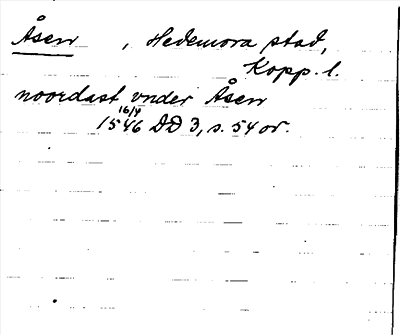 Åsen, Hedemora stad,
Kopp. l.
noordast vnder Åsen
16/4
1546 DD 3, s. 54 or.